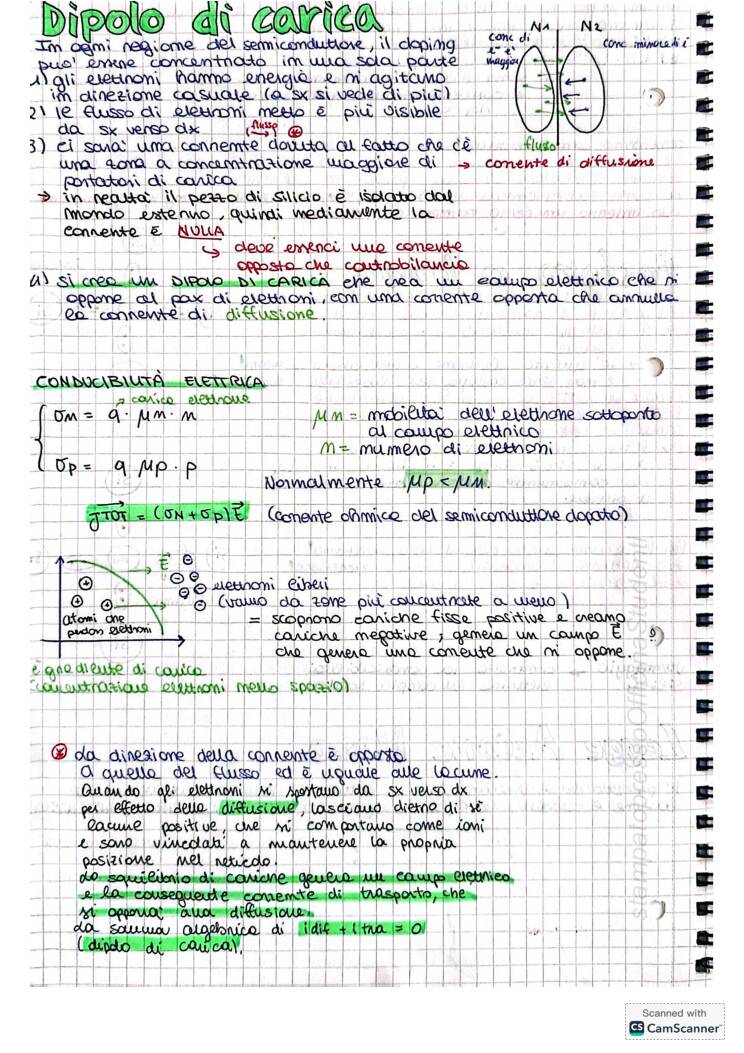 Dipolo di carica
In ogni regione del semiconduttore, il doping
può essere concentrato in una sola parte
1) gli elettroni hanno energia e si agitano
in direzione casuale (a sx si vede di più)
2) le flusso di elettroni netto è più visibile
da sx verso dx (flusso →) *
3) ci sarà una corrente dovuta al fatto che c'è
una zona a concentrazione maggiore di → corrente di diffusione
portatori di carica
→ in realtà il pezzo di silicio è isolato dal
mondo esterno, quindi mediamente la
corrente è NULLA
↳ deve esserci una corrente
opposta che controbilancia
4) si crea un DIPOLO DI CARICA che crea un campo elettrico che si
oppone al pax di elettroni, con una corrente opposta che annulla
la corrente di diffusione.
N1 N2
conc di
e- è
maggiore
conc minore di i
flusso
CONDUCIBILITÀ ELETTRICA
→ carica elettrone
σn = q · μn · n
σp = q μp · p
μn = mobilità dell'elettrone sottoposto
al campo elettrico
n = numero di elettroni
Normalmente μp < μn.
J TOT = (σN + σp) E (corrente ohmica del semiconduttore dopato)
E
atomi che
perdon elettroni
elettroni liberi
(vanno da zone più concentrate a meno)
= scoprono cariche fisse positive e creano
cariche negative, genera un campo E
che genera una corrente che si oppone.
è gradiente di carica
(concentrazione elettroni nello spazio)
* la direzione della corrente è opposta
a quella del flusso ed è uguale alle lacune.
Quando gli elettroni si spostano da sx verso dx
per effetto della diffusione, lasciano dietro di sé
lacune positive, che si comportano come ioni
e sono vincolati a mantenere la propria
posizione nel reticolo.
Lo squilibrio di cariche genera un campo elettrico
e la conseguente corrente di trasporto, che
si opporrà alla diffusione.
La somma algebrica di i dif + i tra = 0
(dipolo di carica).
Scanned with
CS CamScanner